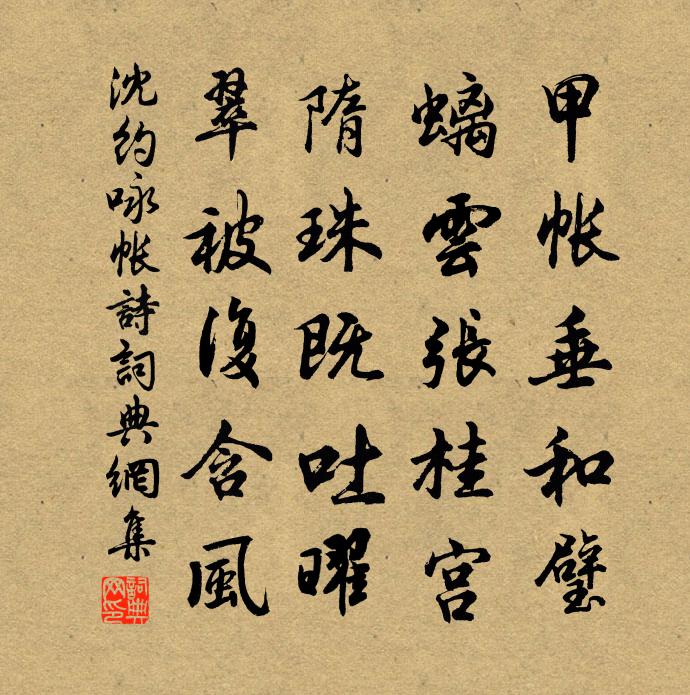 甲帐垂和璧
螭雲張桂宮
隋珠既吐曜
翠被復含風
沈約咏帐詩詞典網集
詞典網印